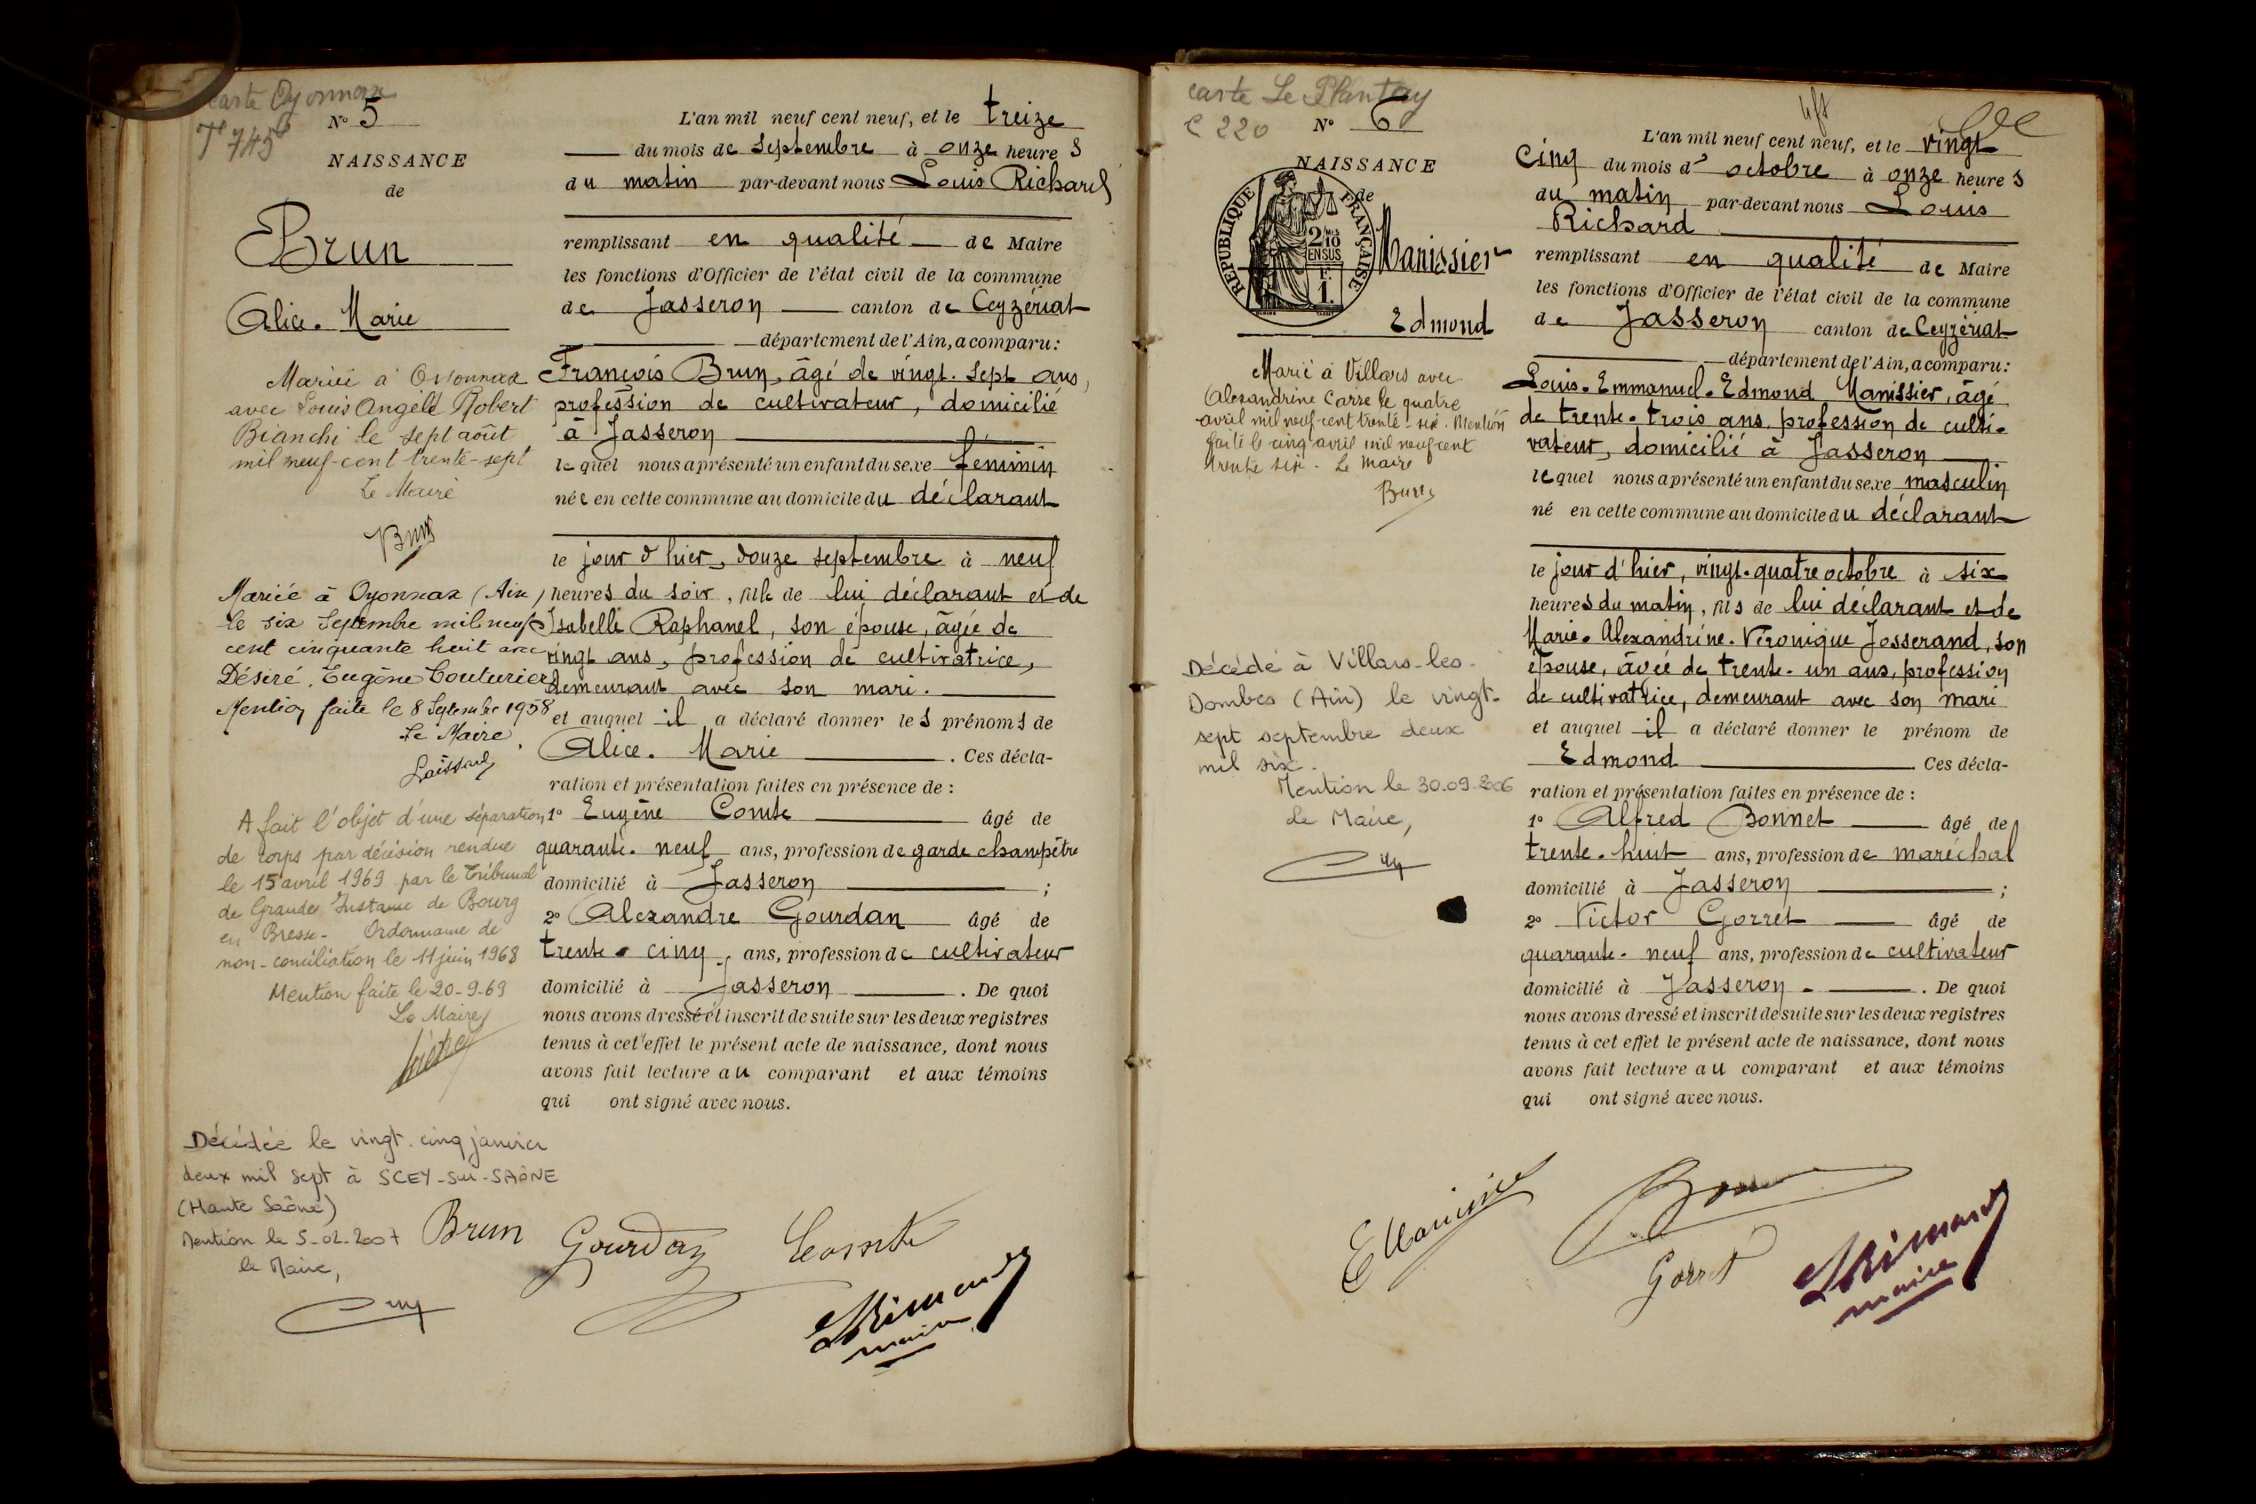 carte Oyonnax
N° 5
NAISSANCE
de
Brun
Alice. Marie
Mariée à Oyonnax
avec Louis Angele Robert
Bianchi le sept août
mil neuf-cent trente-sept
Le Maire
Mariée à Oyonnax (Ain)
le six Septembre mil neuf
cent cinquante huit avec
Désiré. Eugène Couturier
Mention faite le 8 Septembre 1958
Le Maire,
A fait l'objet d'une séparation
de corps par décision rendue
le 15 avril 1969 par le Tribunal
de Grande Instance de Bourg
en Bresse - Ordonnance de
non-conciliation le 11 juin 1968
Mention faite le 20-9-69
Le Maire
Décédée le vingt-cinq janvier
deux mil sept à SCEY-sur-SAÔNE
(Haute Saône)
Mention le 5-02-2007
le Maire,
L'an mil neuf cent neuf, et le treize
du mois de septembre à onze heures
du matin par-devant nous Louis Richard
remplissant en qualité de Maire
les fonctions d'Officier de l'état civil de la commune
de Jasseron canton de Ceyzériat
département de l'Ain, a comparu:
François Brun, âgé de vingt. sept ans,
profession de cultivateur, domicilié
à Jasseron
lequel nous a présenté un enfant du sexe féminin
née en cette commune au domicile du déclarant
le jour d'hier, douze septembre à neuf
heures du soir, fille de lui déclarant et de
Isabelle Raphanel, son épouse, âgée de
vingt ans, profession de cultivatrice,
demeurant avec son mari.
et auquel il a déclaré donner les prénoms de
Alice. Marie . Ces décla-
ration et présentation faites en présence de :
1° Eugène Comte âgé de
quarante. neuf ans, profession de garde champêtre
domicilié à Jasseron ;
2° Alexandre Gourdan âgé de
trente-cinq, ans, profession de cultivateur
domicilié à Jasseron . De quoi
nous avons dressé et inscrit de suite sur les deux registres
tenus à cet effet le présent acte de naissance, dont nous
avons fait lecture au comparant et aux témoins
qui ont signé avec nous.
Brun Gourdan Comte
maire
carte Le Plantay
C 220 N° 6
NAISSANCE
de
REPUBLIQUE FRANÇAISE
2/10
EN SUS
F.
1.
Manissier
Edmond
Marié à Villars avec
Alexandrine Carre le quatre
avril mil neuf-cent trente-six. Mention
faite le cinq avril mil neuf cent
trente six. Le Maire
Décédé à Villars-les-
Dombes (Ain) le vingt-
sept septembre deux
mil six.
Mention le 30.09.2006
Le Maire,
L'an mil neuf cent neuf, et le vingt
cinq du mois d'octobre à onze heures
du matin par-devant nous Louis
Richard
remplissant en qualité de Maire
les fonctions d'Officier de l'état civil de la commune
de Jasseron canton de Ceyzériat
département de l'Ain, a comparu:
Louis-Emmanuel-Edmond Manissier, âgé
de trente-trois ans, profession de culti-
vateur, domicilié à Jasseron
lequel nous a présenté un enfant du sexe masculin
né en cette commune au domicile du déclarant
le jour d'hier, vingt-quatre octobre à six
heures du matin, fils de lui déclarant et de
Marie-Alexandrine-Véronique Josserand, son
épouse, âgée de trente-un ans, profession
de cultivatrice, demeurant avec son mari
et auquel il a déclaré donner le prénom de
Edmond . Ces décla-
ration et présentation faites en présence de :
1° Alfred Bonnet âgé de
trente-huit ans, profession de maréchal
domicilié à Jasseron ;
2° Victor Gorret âgé de
quarante-neuf ans, profession de cultivateur
domicilié à Jasseron . De quoi
nous avons dressé et inscrit de suite sur les deux registres
tenus à cet effet le présent acte de naissance, dont nous
avons fait lecture au comparant et aux témoins
qui ont signé avec nous.
E Manissier
Gorret
maire